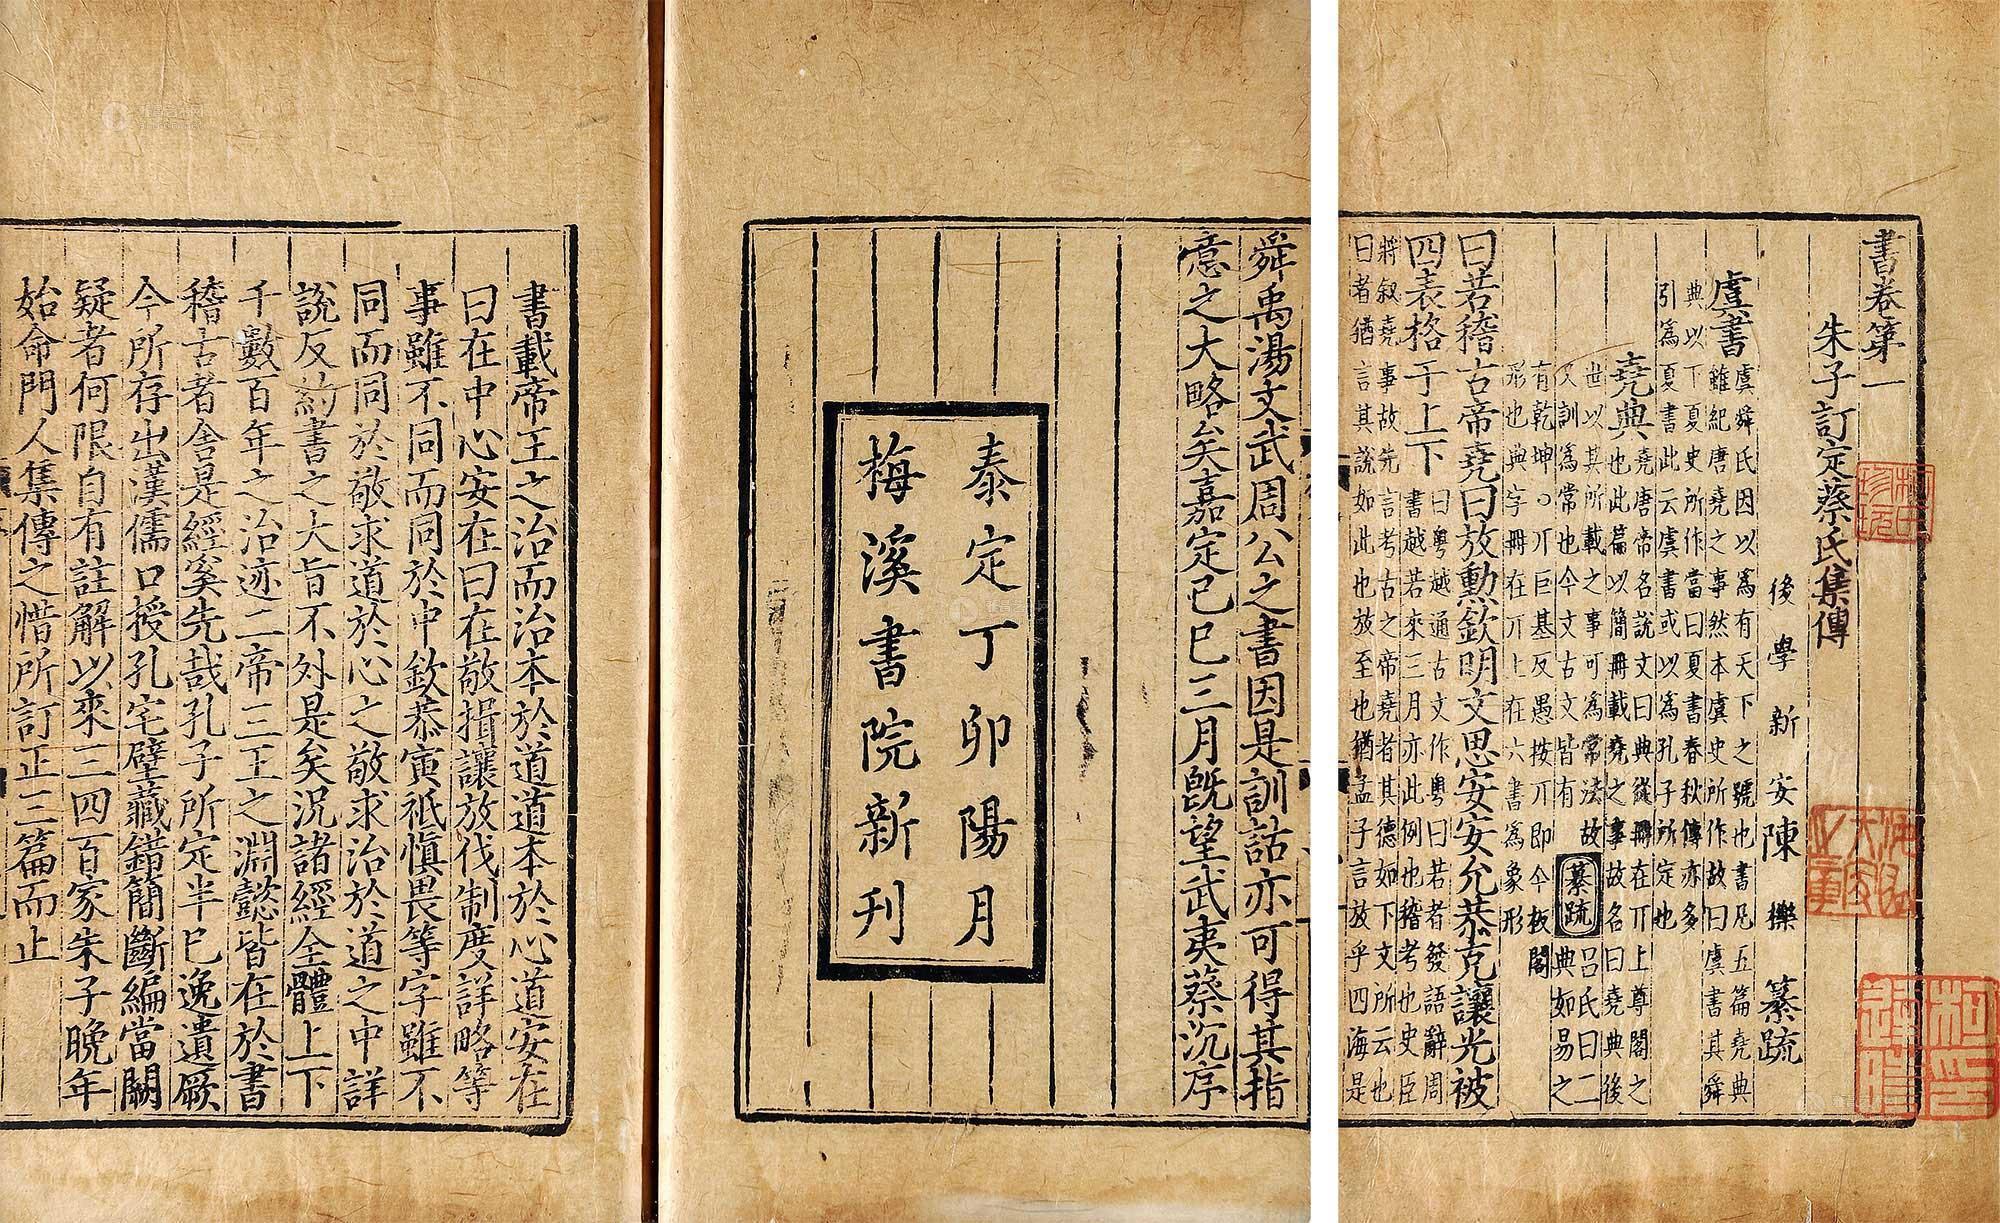 書卷第一
朱子訂定蔡氏集傳
後學新安陳櫟纂疏
虞書
虞舜氏因以為有天下之號也書凡五篇堯典
雖紀唐堯之事然本虞史所作故曰虞書其舜
典以下夏史所作當曰夏書春秋傳亦多
引為夏書此云虞書或以為孔子所定也
堯典
堯唐帝名說文曰典從冊在丌上尊閣之
也此篇以簡冊載堯之事故名曰堯典後
世以其所載之事可為常法故
又訓為常也今文古文皆有
纂疏
呂氏曰二
典如易之
有乾坤○丌巨基反愚按丌即今板閣
形也典字冊在丌上在六書為象形
曰若稽古帝堯曰放勳欽明文思安安允恭克讓光被
四表格于上下
曰粵越通古文作粵曰若者發語辭周
書越若來三月亦此例也稽考也史臣
將叙堯事故先言考古之帝堯者其德如下文所云也
曰者猶言其說如此也放至也猶孟子言放乎四海是
柯氏珍玩
舜禹湯文武周公之書因是訓詁亦可得其指
意之大略矣嘉定己巳三月既望武夷蔡沉序
泰定丁卯陽月
梅溪書院新刊
書載帝王之治而治本於道道本於心道安在
曰在中心安在曰在敬揖讓放伐制度詳略等
事雖不同而同於中欽恭寅祗慎畏等字雖不
同而同於敬求道於心之敬求治於道之中詳
說反約書之大旨不外是矣況諸經全體上下
千數百年之治迹二帝三王之淵懿皆在於書
稽古者舍是經奚先哉孔子所定半已逸遺厥
今所存出漢儒口授孔宅壁藏錯簡斷編當闕
疑者何限自有註解以來三四百家朱子晚年
始命門人集傳之惜所訂正三篇而止